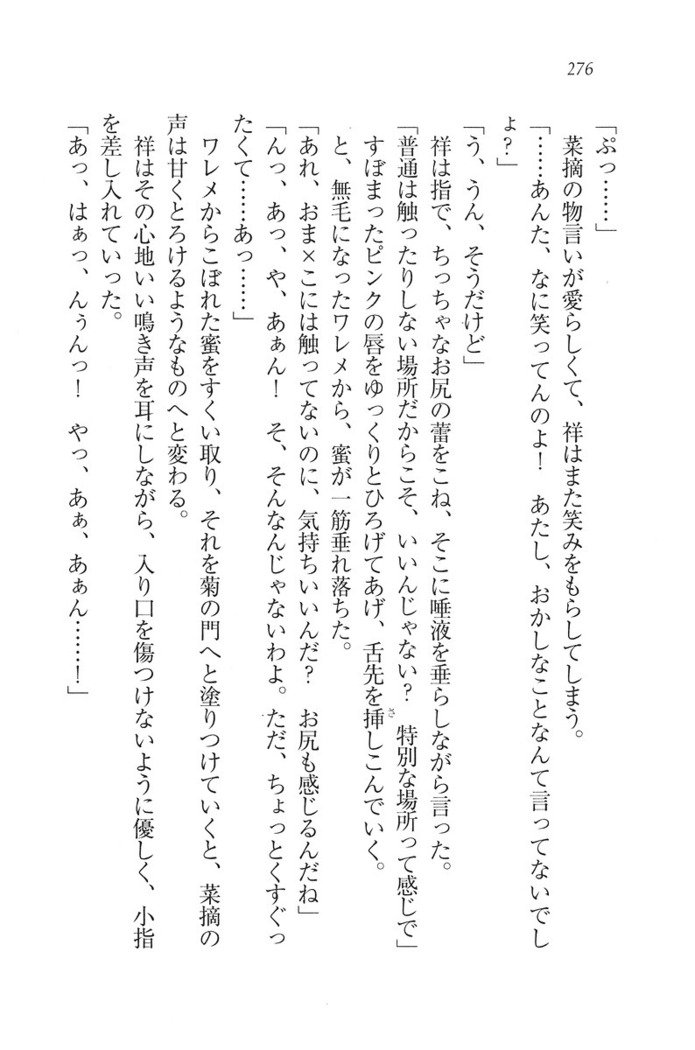 276
「ぷっ……」
菜摘の物言いが愛らしくて、祥はまた笑みをもらしてしまう。
「……あんた、なに笑ってんのよ！　あたし、おかしなことなんて言ってないでし
ょ？」
「う、うん、そうだけど」
祥は指で、ちっちゃなお尻の蕾をこね、そこに唾液を垂らしながら言った。
「普通は触ったりしない場所だからこそ、いいんじゃない？　特別な場所って感じで」
すぼまったピンクの唇をゆっくりとひろげてあげ、舌先を挿しこんでいく。
と、無毛になったワレメから、蜜が一筋垂れ落ちた。
「あれ、おま×こには触ってないのに、気持ちいいんだ？　お尻も感じるんだね」
「んっ、あっ、や、あぁん！　そ、そんなんじゃないわよ。ただ、ちょっとくすぐっ
たくて……あっ……」
ワレメからこぼれた蜜をすくい取り、それを菊の門へと塗りつけていくと、菜摘の
声は甘くとろけるようなものへと変わる。
祥はその心地いい鳴き声を耳にしながら、入り口を傷つけないように優しく、小指
を差し入れていった。
「あっ、はぁっ、んぅんっ！　やっ、あぁ、あぁん……！」